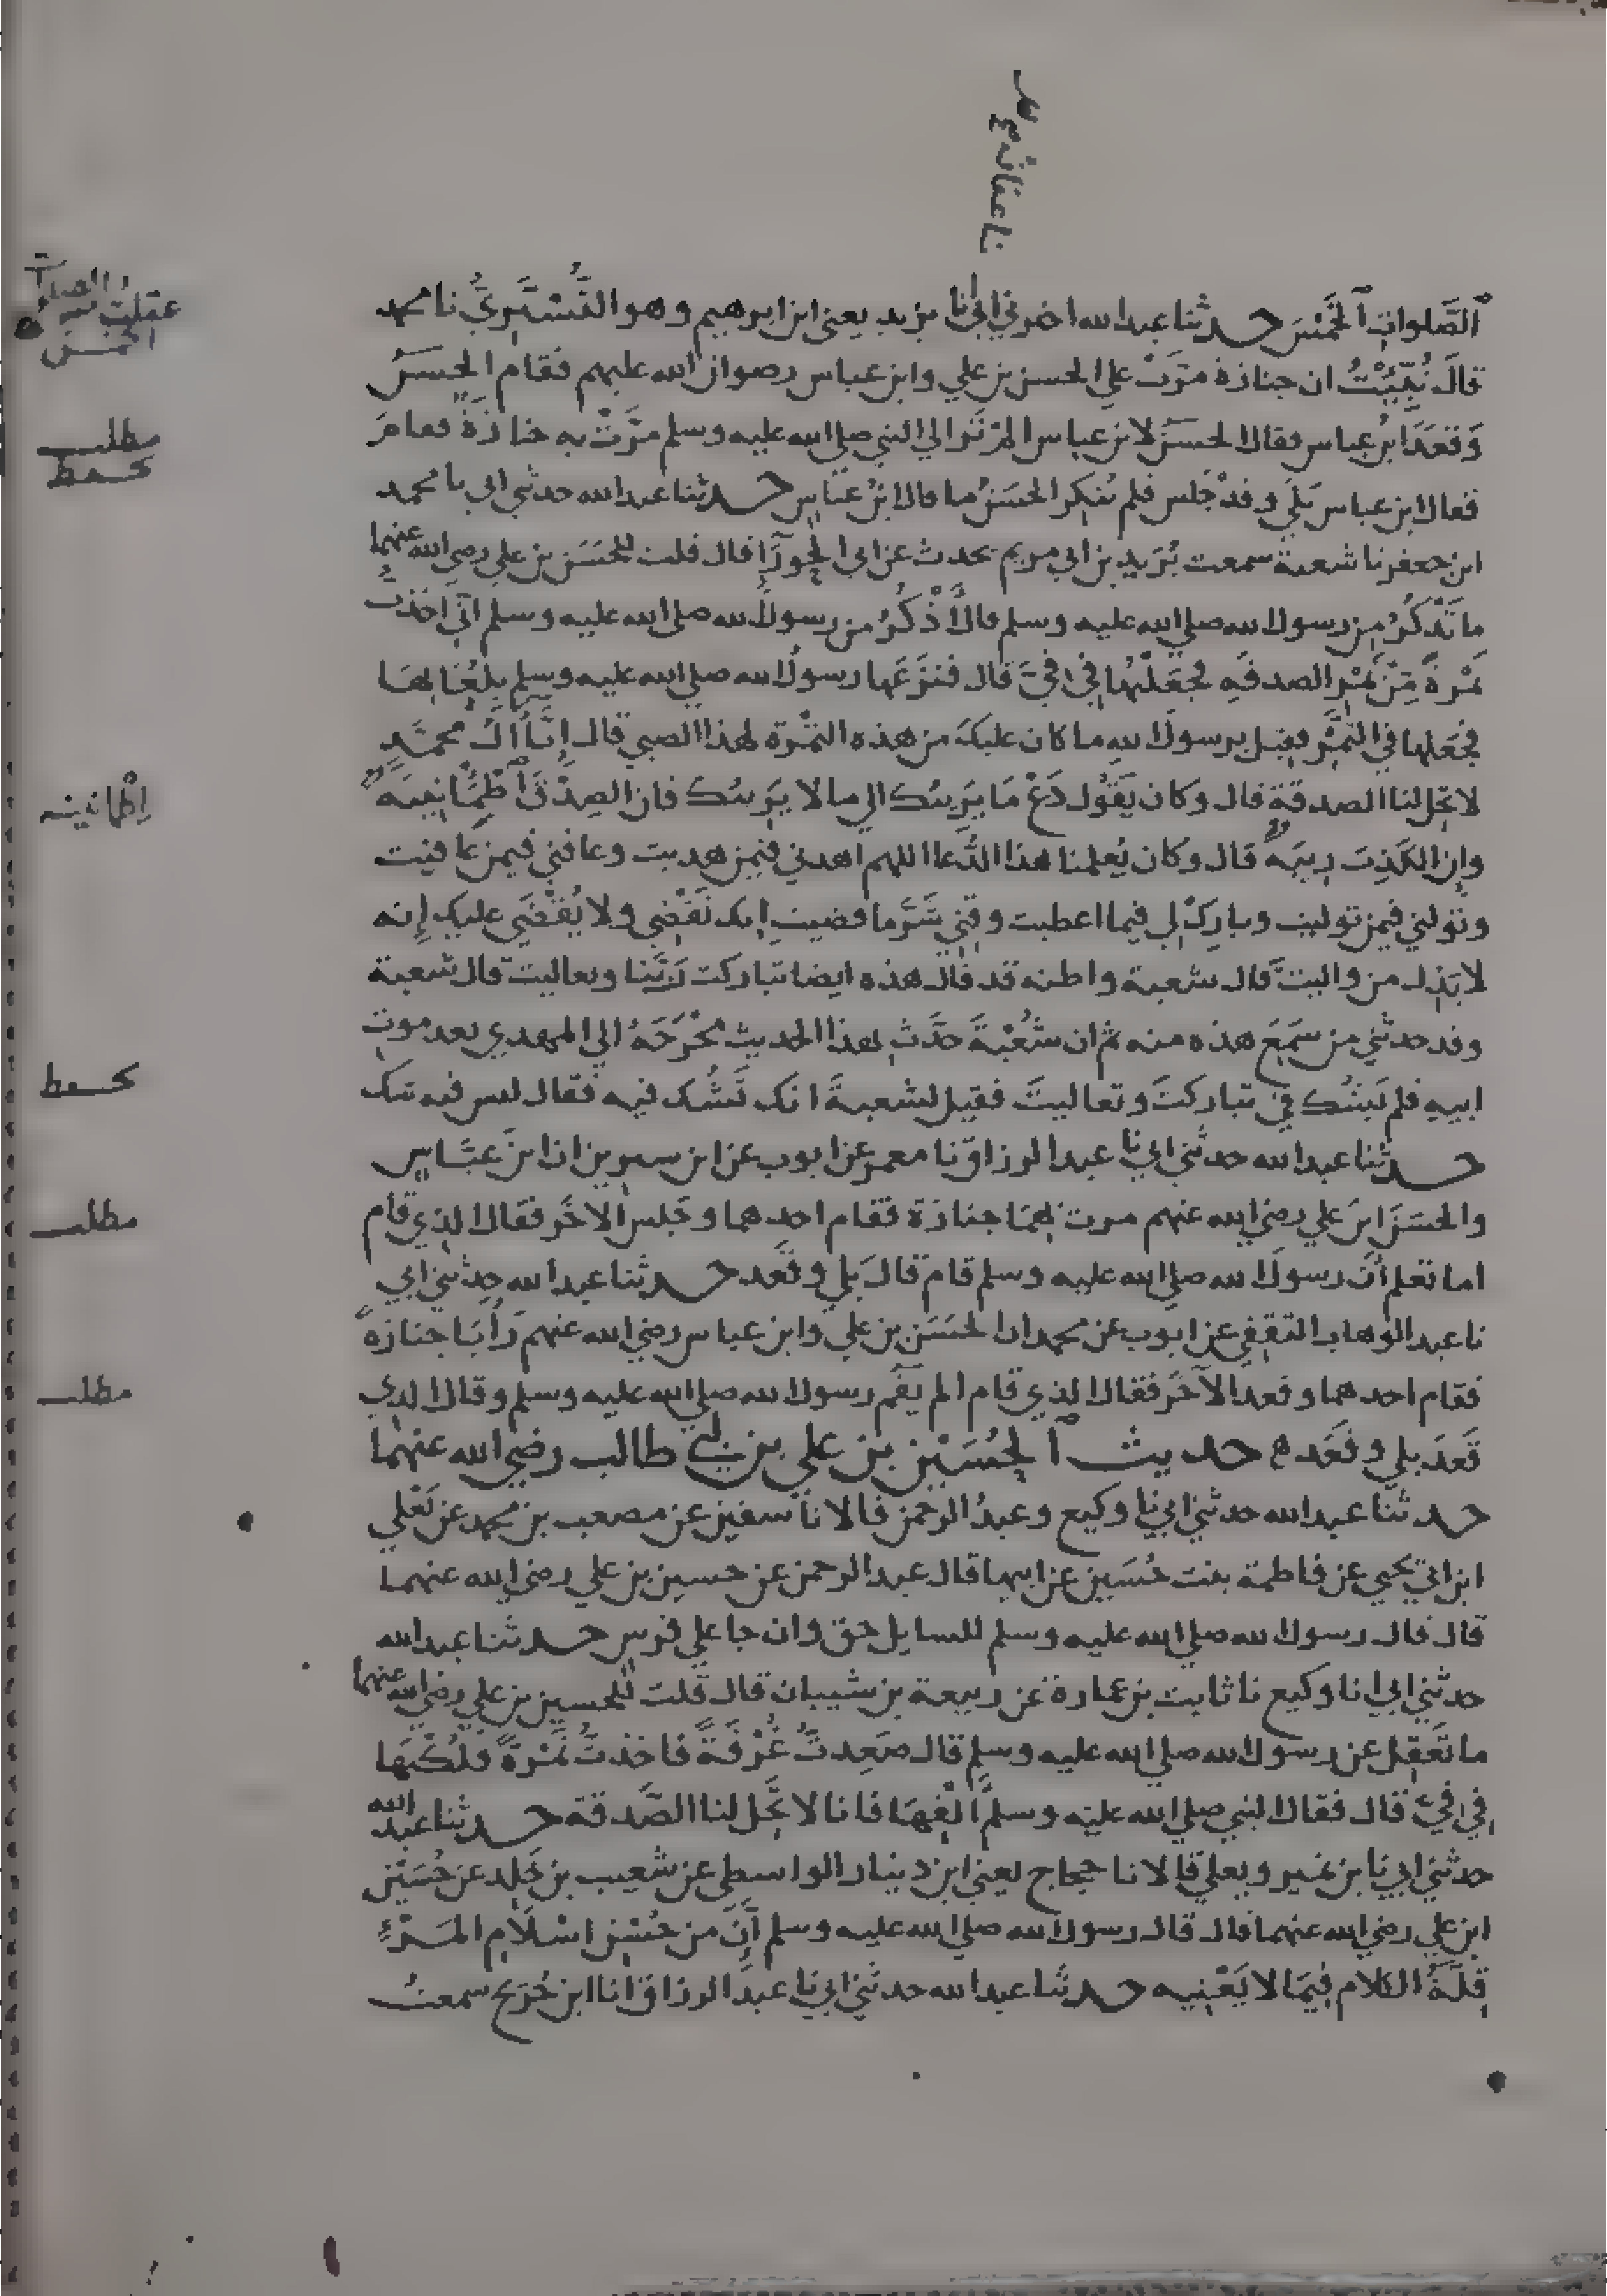 نا عفان
الصَّلواتِ الخَمْسَ حدثنا عبدالله اخبرني ابي انا يزيد يعني ابن ابرهيم وهو التُّسْتَرِيُّ نا محمد
قالَ نُبِّيْتُ ان جنازة مرَّتْ علي الحسن بن علي وابن عباس رضوان الله عليهم فقام الحسنُ
وَقَعَدَ ابنُ عباس فقال الحسنُ لابن عباس الم تَرَ الي النبي صلي الله عليه وسلم مرَّتْ به جنازَةٌ فقامَ
فقال ابن عباس بَلَي وقدْ جَلس فلم يُنكِر الحسَنُ ما قال ابنُ عبَّاسٍ حدثنا عبدالله حدثني ابي نا محمد
ابن جعفر نا شعبة سمعت بُرَيد بن ابي مريم يحدث عن ابي الحَورَآ قال قلت للحسَن بن علي رضي الله عنهما
ما تَذكُرُ من رسول الله صلي الله عليه وسلم قال أَذْكُرُ من رسول الله صلي الله عليه وسلم انّي اخَذتُ
تَمْرةً مِن تَمْرِ الصدقهِ فجعَلْتُها في فِيَّ قال فنزَعَها رسولُ الله صلي الله عليه وسلم بِلُعَابها
فجَعَلها في التَّمْر فقيل يرسولَ اللهِ ما كان عليكَ من هذه التمْرة لهذا الصبي قال إنَّا آلَ محمَّدٍ
لا تحِل لنا الصدقة قال وكان يَقُول دَعْ مَا يَريبُك الي مالا يَريبُك فان الصِدْقَ طُمَأنِينَهٌ
وإن الكَذِبَ رِيبَهٌ قال وكان يُعلمنا هذا الدُّعا اللهم اهدني فيمن هديت وعافني فيمن عَافيت
وتَولني فيمن توليت وبارِكْ لي فيما اعطيت وقِني شَرَّ ما قضيت إنك تَقْضي ولا يُقْضَي عليك إنه
لا يَذِل من واليتَ قال شعبة واظنه قد قال هذه ايضا تباركت رَبَّنا وتعاليت قال شعبة
وقد حدثني من سَمِعَ هذه منه ثم ان شُعْبَةَ حدَّث بهذا الحديث مَخْرَجَهُ الي المهدي بعد موتِ
ابيهِ فلم يَشُك في تباركتَ وتعاليتَ فقيل لشعبةَ انك تَشُك فيه فقال ليس فيه شك
حدثنا عبدالله حدثني ابي نا عبدالرزاق نا معمر عن ايوب عن ابن سيرين ان ابنَ عبَّاسٍ
والحسَنَ ابن علي رضي الله عنهم مرت بهِمَا جنازة فقام احدهما وجَلس الاخر فقال الذي قام
اما تعلم أنّ رسولَ الله صلي الله عليه وسلم قام قالَ بَلي وقَعَد حدثنا عبدالله حدثني ابي
نا عبدالوهاب الثقفي عن ايوب عن محمد ان الحَسَن بن علي وابن عباس رضي الله عنهم رَأيَا جنازهً
فقام احدهما وقعد الآخَر فقال الذي قام الم يقُم رسول الله صلي الله عليه وسلم وقال الذي
قَعَدَ بلي وقَعَد حديث الحُسَيْن بن علي بن ابي طالب رضي الله عنهما
حدثنا عبدالله حدثني ابي نا وكيع وعبدُ الرحمن قالا نا سفين عن مصعب بن محمد عن يَعْلي
ابن ابي يحيي عن فاطمة بنت حُسَين عن ابيها قال عبدالرحمن عن حسين بن علي رضي الله عنهما
قال قال رسول الله صلي الله عليه وسلم للسايل حق وان جا علي فرس حدثنا عبدالله
حدثني ابي انا وكيع نا ثابت بن عمارة عن ربيعة بن شيبان قال قلت للحسين بن علي رضي الله عنهما
ما تَعقِل عن رسول الله صلي الله عليه وسلم قال صَعِدتُ غُرْفَةً فاخذتُ تَمْرَةً فلُكْتُها
في فِيَّ قال فقال النبي صلي الله عليه وسلم أَلْقِهَا فانا لا تحِّل لنا الصَّدقة حدثنا عبدالله
حدثني ابي نا ابن نمير ويعلي قالا نا حجاج يعني ابن دينار الواسطي عن شعيب بن خلد عن حُسَيْن
ابن علي رضي الله عنهما قال قال رسول الله صلي الله عليه وسلم أنَّ من حُسْن اسْلَام المَرْءِ
قِلَّةَ الكلام فيمَا لا يَعْنِيه حدثنا عبدالله حدثني ابي نا عبدالرزاق انا ابن جُرَيج سمعتُ
عقلت الصلوات الخمس
مطلب
اطمانينه
مطلب
مطلب